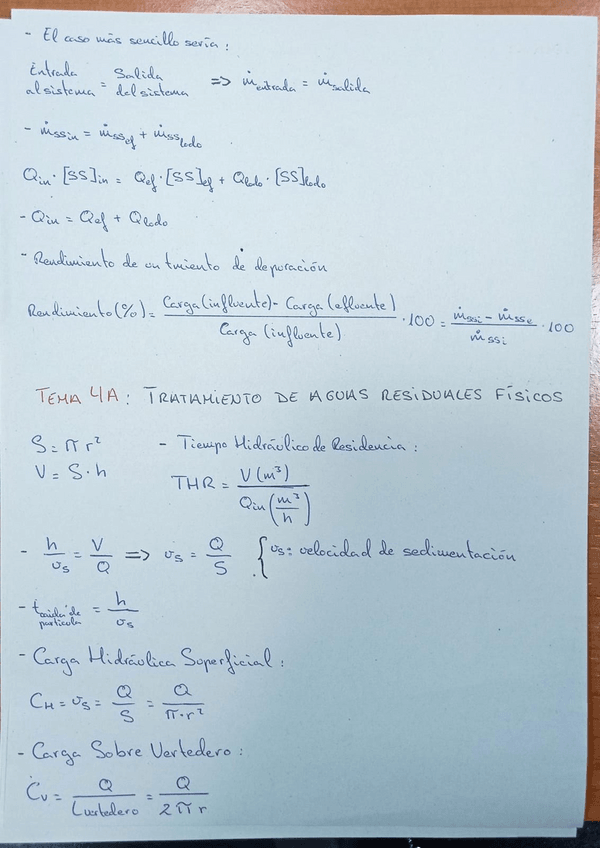 - El caso más sencillo sería:
Entrada al sistema = Salida del sistema => ṁentrada = ṁsalida
- ṁssin = ṁssef + ṁsslodo
Qin · [SS]in = Qef · [SS]ef + Qlodo · [SS]lodo
- Qin = Qef + Qlodo
- Rendimiento de un tmiento de depuración
Rendimiento (%) = (Carga (influente) - Carga (efluente)) / Carga (influente) · 100 = (ṁssi - ṁsse) / ṁssi · 100
TEMA 4A: TRATAMIENTO DE AGUAS RESIDUALES FÍSICOS
S = π r²
- Tiempo Hidráulico de Residencia:
V = S · h
THR = V (m³) / Qin (m³/h)
- h/υs = V/Q => υs = Q/S { υs: velocidad de sedimentación
- tcaída de partícula = h/υs
- Carga Hidráulica Superficial:
CH = υs = Q/S = Q/(π·r²)
- Carga Sobre Vertedero:
Cv = Q/Lvertedero = Q/(2πr)